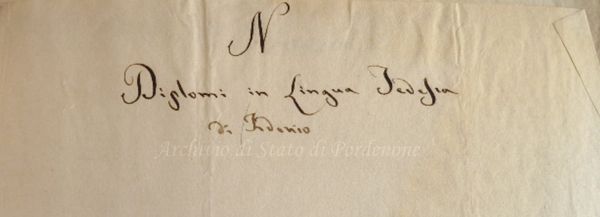 N
Diplomi in Lingua Tedesca
di
Archivio di Stato di Pordenone